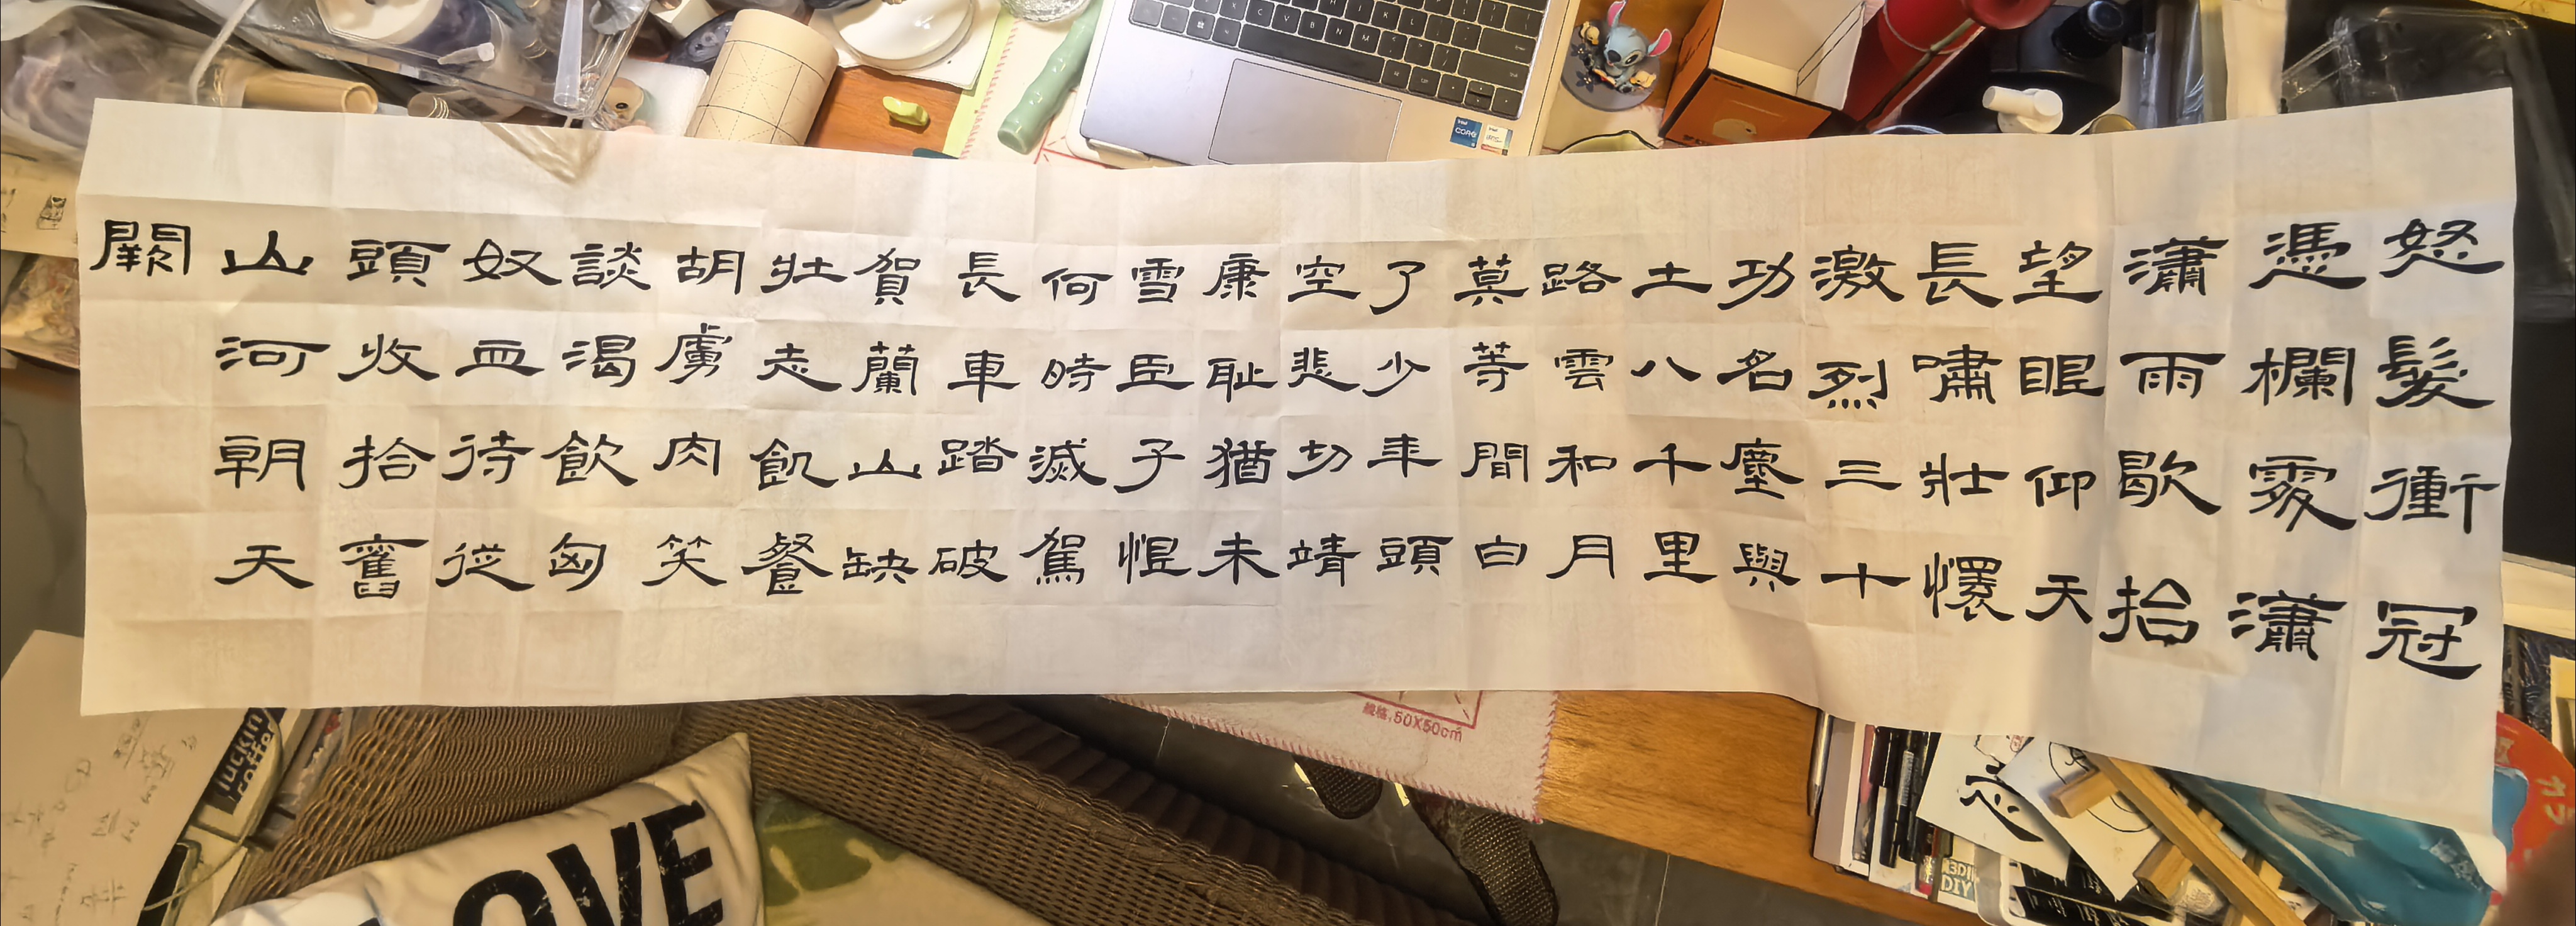 怒髮衝冠
憑欄處瀟
瀟雨歇拾
望眼仰天
長嘯壯懷
激烈三十
功名塵與
土八千里
路雲和月
莫等間白
了少年頭
空悲切靖
康耻猶未
雪臣子恨
何時滅駕
長車踏破
賀蘭山缺
壯志飢餐
胡虜肉笑
談渴飲匈
奴血待從
頭收拾舊
山河朝天
闕
規格,50X50cm
OVE
CORE
DIY